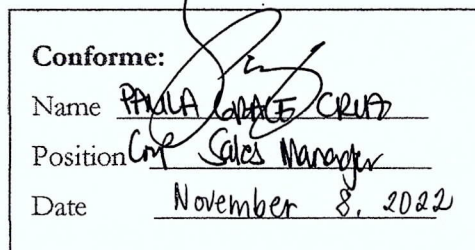 Conforme:
Name PAULA GRACE CRUZ
Position Corp Sales Manager
Date November 8, 2022